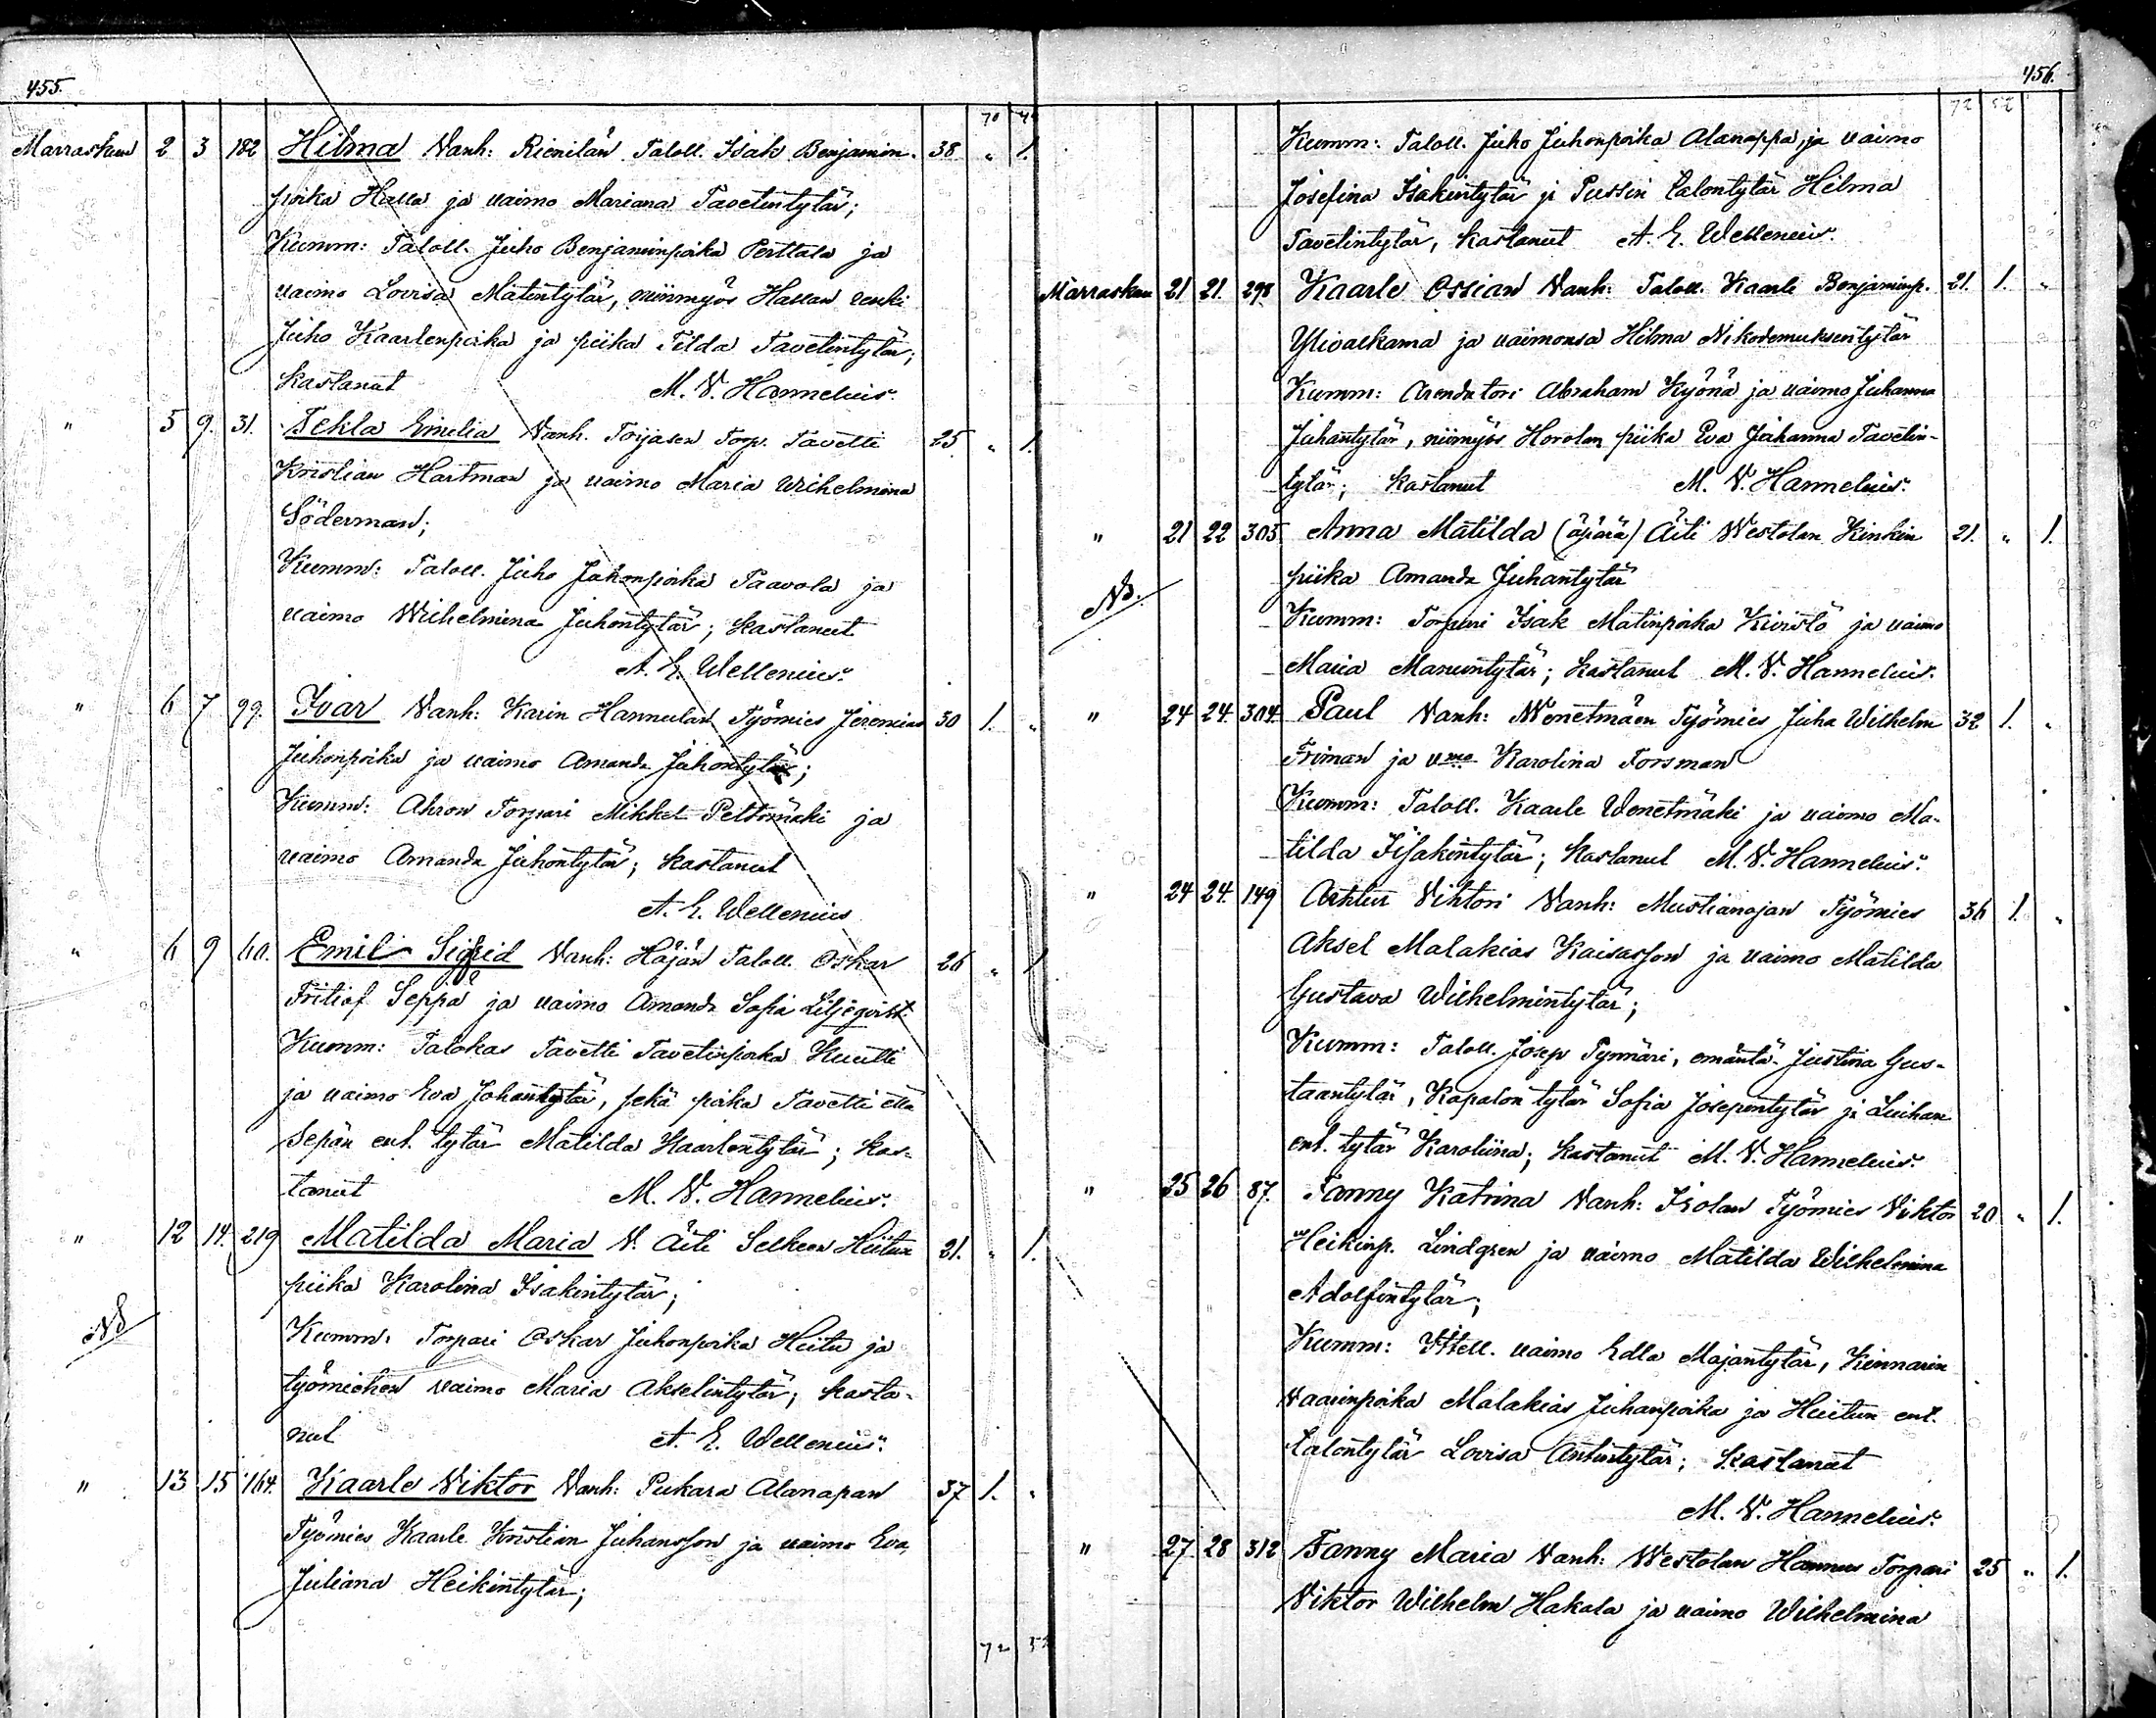 455.
70
Marraskuu 2 3 182 Hilma Vanh: Rienilän Taloll. Isak Benjamin- 38 " 1.
poika Halla ja vaimo Mariana Tavetintytär;
Kumm: Taloll. Juho Benjaminpoika Perttala ja
vaimo Lovisa Matintytär, niinmyös Hallan renki
Juho Kaarlenpoika ja piika Tilda Tavetintytär;
kastanut M. V. Hannelius.
" 5 9. 31. Tekla Emilia Vanh. Torjasen Torp. Tavetti 25. " 1.
Kristian Hartman ja vaimo Maria Wilhelmina
Söderman;
Kumm: Taloll. Juho Juhonpoika Taavola ja
vaimo Wilhelmina Juhontytär; kastanut
A. E. Wellenius.
" 6 7 99. Ivar Vanh: Karin Hannulan Työmies Jeremias 30 1. "
Juhonpoika ja vaimo Amanda Juhontytär;
Kumm: Ahron Torpari Mikkel Peltomäki ja
vaimo Amanda Juhontytär; kastanut
A. E. Wellenius
" 6 9 60. Emil Sigfrid Vanh: Höjän Taloll. Oskar 26 " 1
Fritiof Seppä ja vaimo Amanda Sofia Liljeqvist.
Kumm: Talokas Tavetti Tavetinpoika Kuutti
ja vaimo Eva Johantytär, sekä poika Tavetti että
Sepän ent. tytär Matilda Kaarlentytär; kas-
tanut M. V. Hannelius.
" 12 14. 219 Matilda Maria V. Äiti Selkeen Heitun 21. " 1.
piika Karolina Isakintytär;
Nb Kumm: Torpari Oskar Juhonpoika Heitu ja
työmiehen vaimo Maria Akselintytär; kasta-
nut A. E. Wellenius.
" 13 15 164. Kaarle Viktor Vanh: Pukara Alanapan 37 1. "
Työmies Kaarle Kristian Juhansson ja vaimo Eva
Juliana Heikintytär;
72
456.
72 52
Kumm: Taloll. Juho Juhonpoika Alanappa, ja vaimo
Josefina Isakintytär ja Pussin talontytär Hilma
Tavetintytär, kastanut A. E. Wellenius.
Marraskuu 21 21. 298 Kaarle Ossian Vanh: Taloll. Kaarle Benjaminp. 21. 1. "
Ylivalkama ja vaimonsa Hilma Nikodemuksentytär
Kumm: Arendatori Abraham Kyönä ja vaimo Juhanna
Juhantytär, niinmyös Horolan piika Eva Juhanna Tavetin-
tytär; kastanut M. V. Hannelius.
" 21 22 305 Anna Matilda (äpärä) Äiti Westolan Kinkin 21. " 1.
piika Amanda Juhantytär
Nb. Kumm: Torpari Isak Matinpoika Kivistö ja vaimo
Maria Manuintytär; kastanut M. V. Hannelius.
" 24 24. 304. Paul Vanh: Wenetmäen Työmies Juha Wilhelm 32 1. "
Friman ja vmo Karolina Forsman
Kumm: Taloll. Kaarle Wenetmäki ja vaimo Ma-
tilda Iisakintytär; kastanut M. V. Hannelius.
" 24 24. 149 Arthur Viktori Vanh: Mustianojan Työmies 36 1. "
Aksel Malakias Kaisasson ja vaimo Matilda
Gustava Wilhelmintytär;
Kumm: Taloll. Josep Tynnäri, emäntä Justina Gus-
taantytär, Kapalon tytär Sofia Josepintytär ja Luihan
ent. tytär Karoliina; kastanut M. V. Hannelius.
" 25 26 87. Fanny Katrina Vanh: Isolan Työmies Viktor 20 " 1.
Heikinp. Lindgren ja vaimo Matilda Wilhelmina
Adolfintytär;
Kumm: Itsell. vaimo Edla Majantytär, Kinnarin
Vaarinpoika Malakias Juhanpoika ja Huitun ent.
talontytär Lovisa Antintytär; kastanut
M. V. Hannelius.
" 27. 28 312 Fanny Maria Vanh: Westolan Hannus Torpari 25 " 1.
Viktor Wilhelm Hakala ja vaimo Wilhelmina